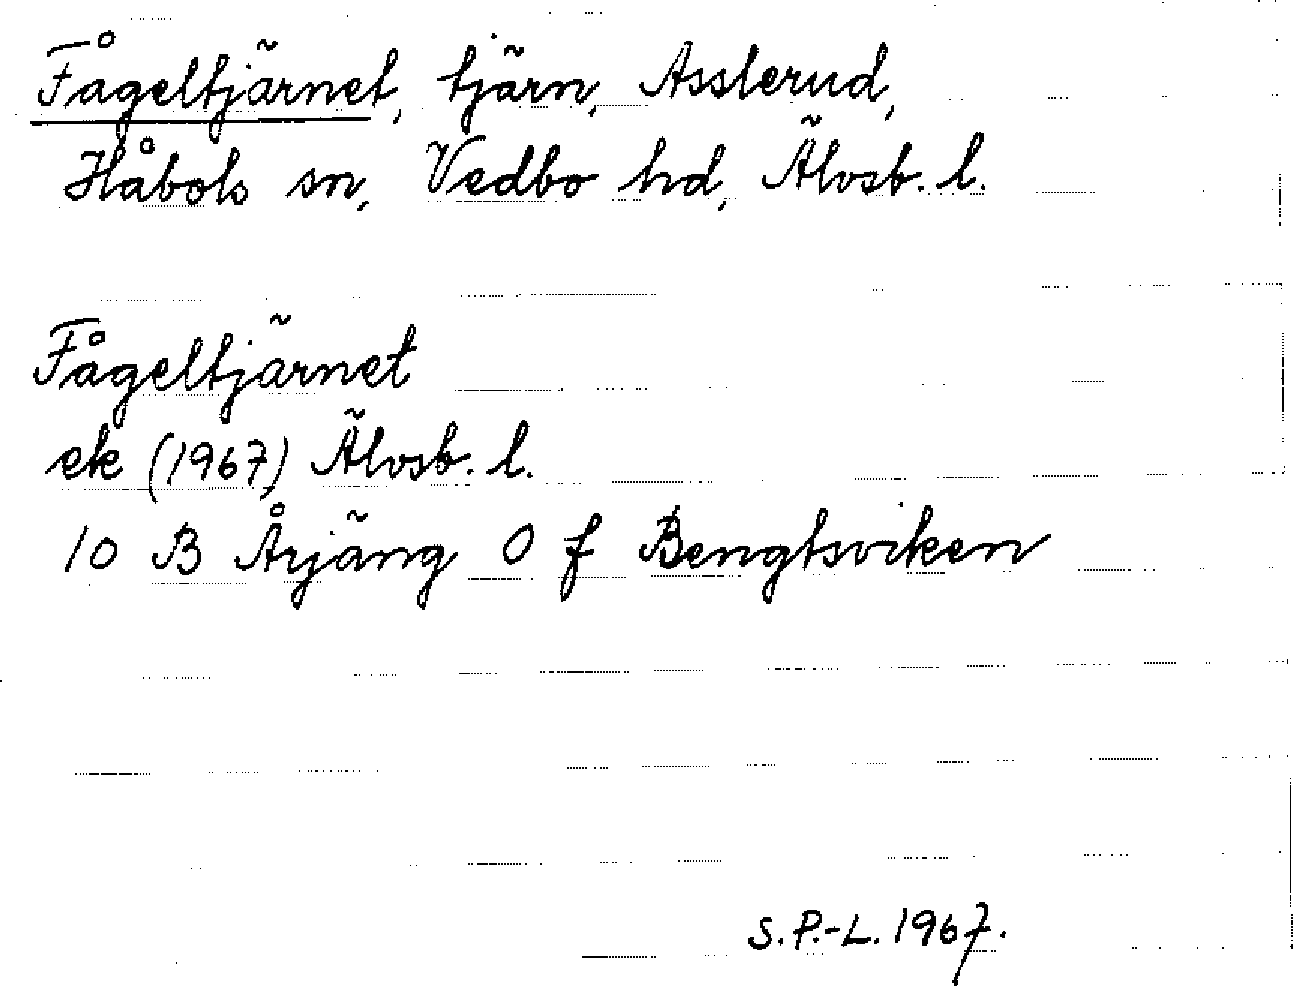 Fågeltjärnet, tjärn, Asslerud,
Håbols sn, Vedbo hd, Älvsb. l.
Fågeltjärnet
ek (1967) Älvsb. l.
10 B Årjäng 0 f Bengtsviken
S.P.-L. 1967.